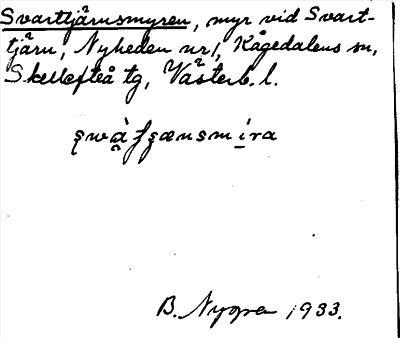 Svarttjärnsmyren, myr vid Svart-
tjärn, Nyheden nr 1, Kågedalens sn,
Skellefteå tg, Västerb. l.
B. Nygren 1933.